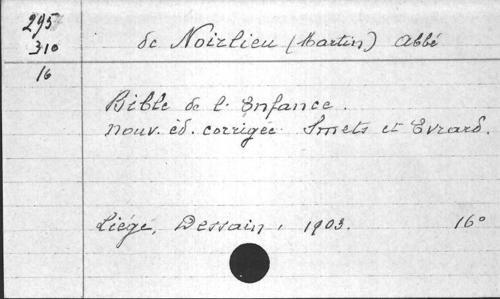 295
310
16
de Noirlieu (Martin) Abbé
Bible de l'Enfance.
nouv. éd. corrigée Smets et Evrard.
Liége, Dessain, 1903. 16°